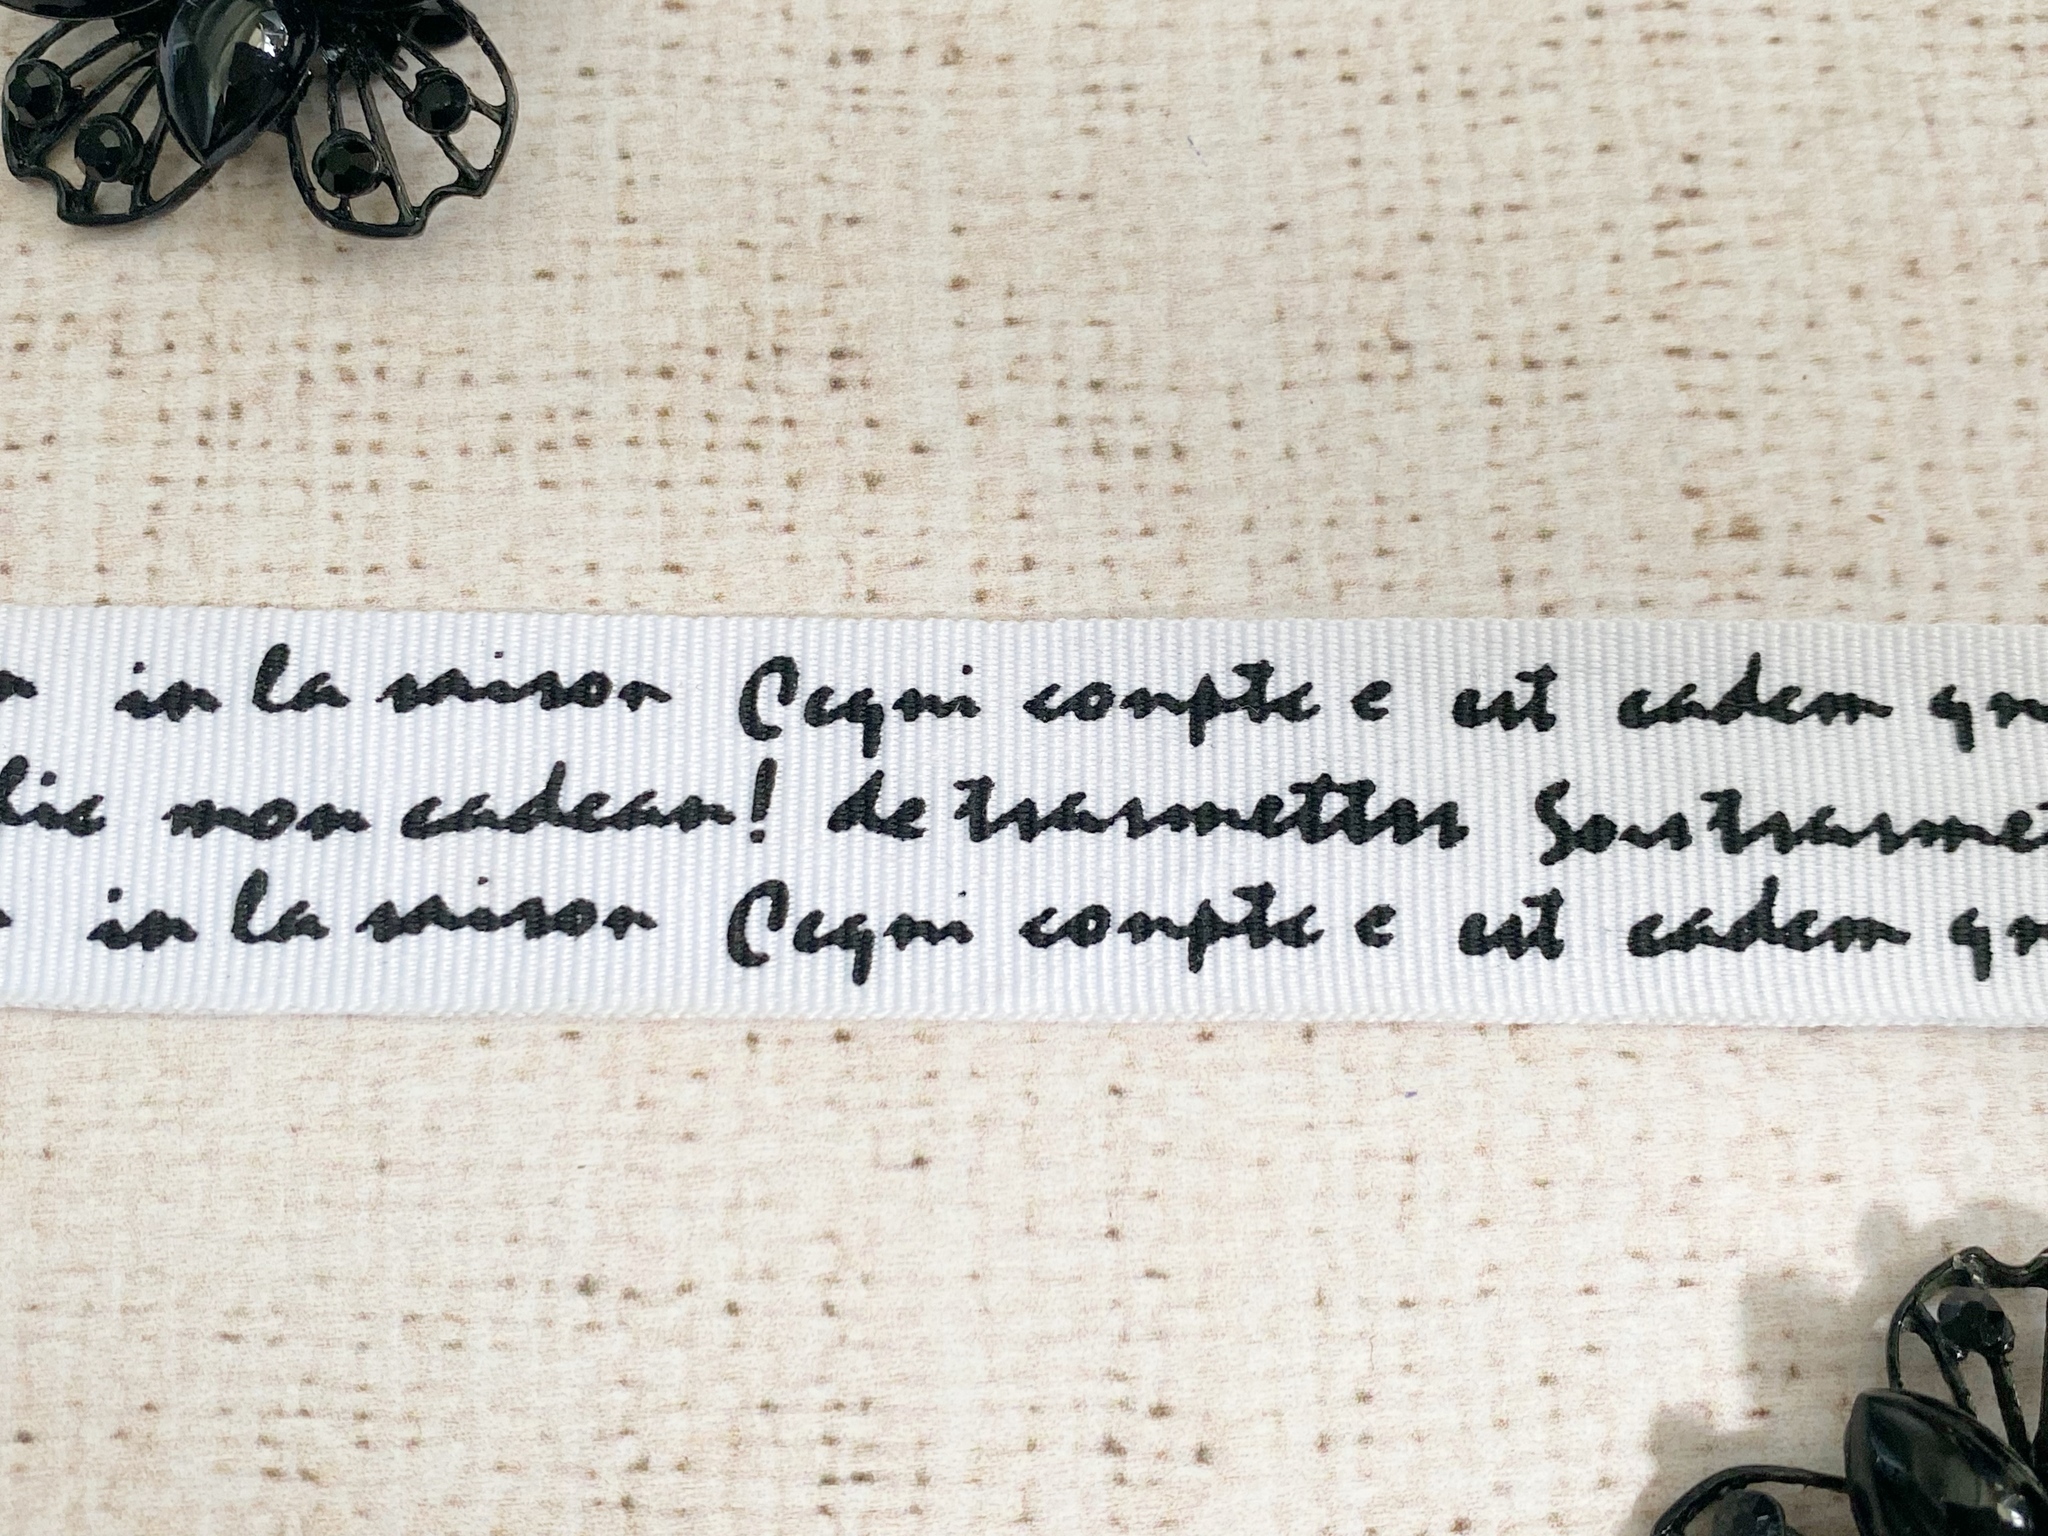 in la saison Ceqni compte e est cadem qn
lic mon cadean! de trasmettes Sous trasmet
in la saison Ceqni compte e est cadem qn